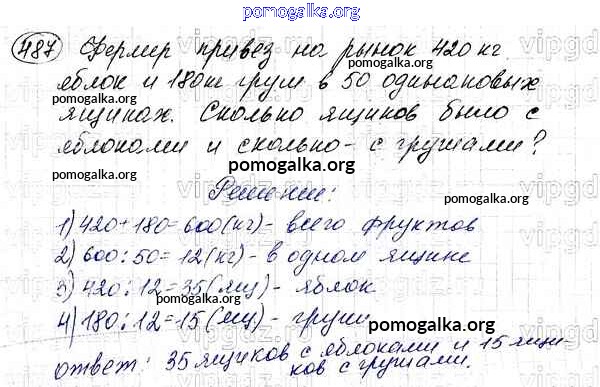 pomogalka.org
487 Фермер привез на рынок 420 кг
яблок и 180 кг груш в 50 одинаковых
pomogalka.org pomogalka.org
ящиках. Сколько ящиков было с
яблоками и сколько - с грушами?
pomogalka.org
Решение:
1) 420+180=600(кг)- всего фруктов
2) 600:50=12(кг)- в одном ящике
pomogalka.org
3) 420:12=35(ящ)- яблок
4) 180:12=15(ящ)- груши
pomogalka.org
ответ: 35 ящиков с яблоками и 15 ящи-
ков с грушами.
pomogalka.org